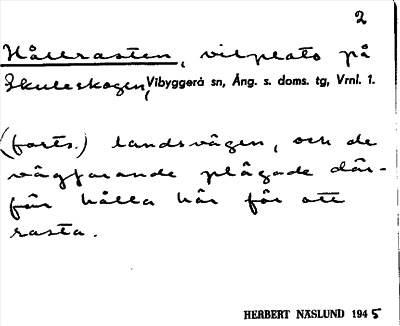 2
Hållrasten, viloplats på
Skuleskogen, Vibyggerå sn, Ång. s. doms. tg, Vrnl. 1.
(forts.) landsvägen, och de
vägfarande plägade där-
för hålla här för att
rasta.
HERBERT NÄSLUND 1945